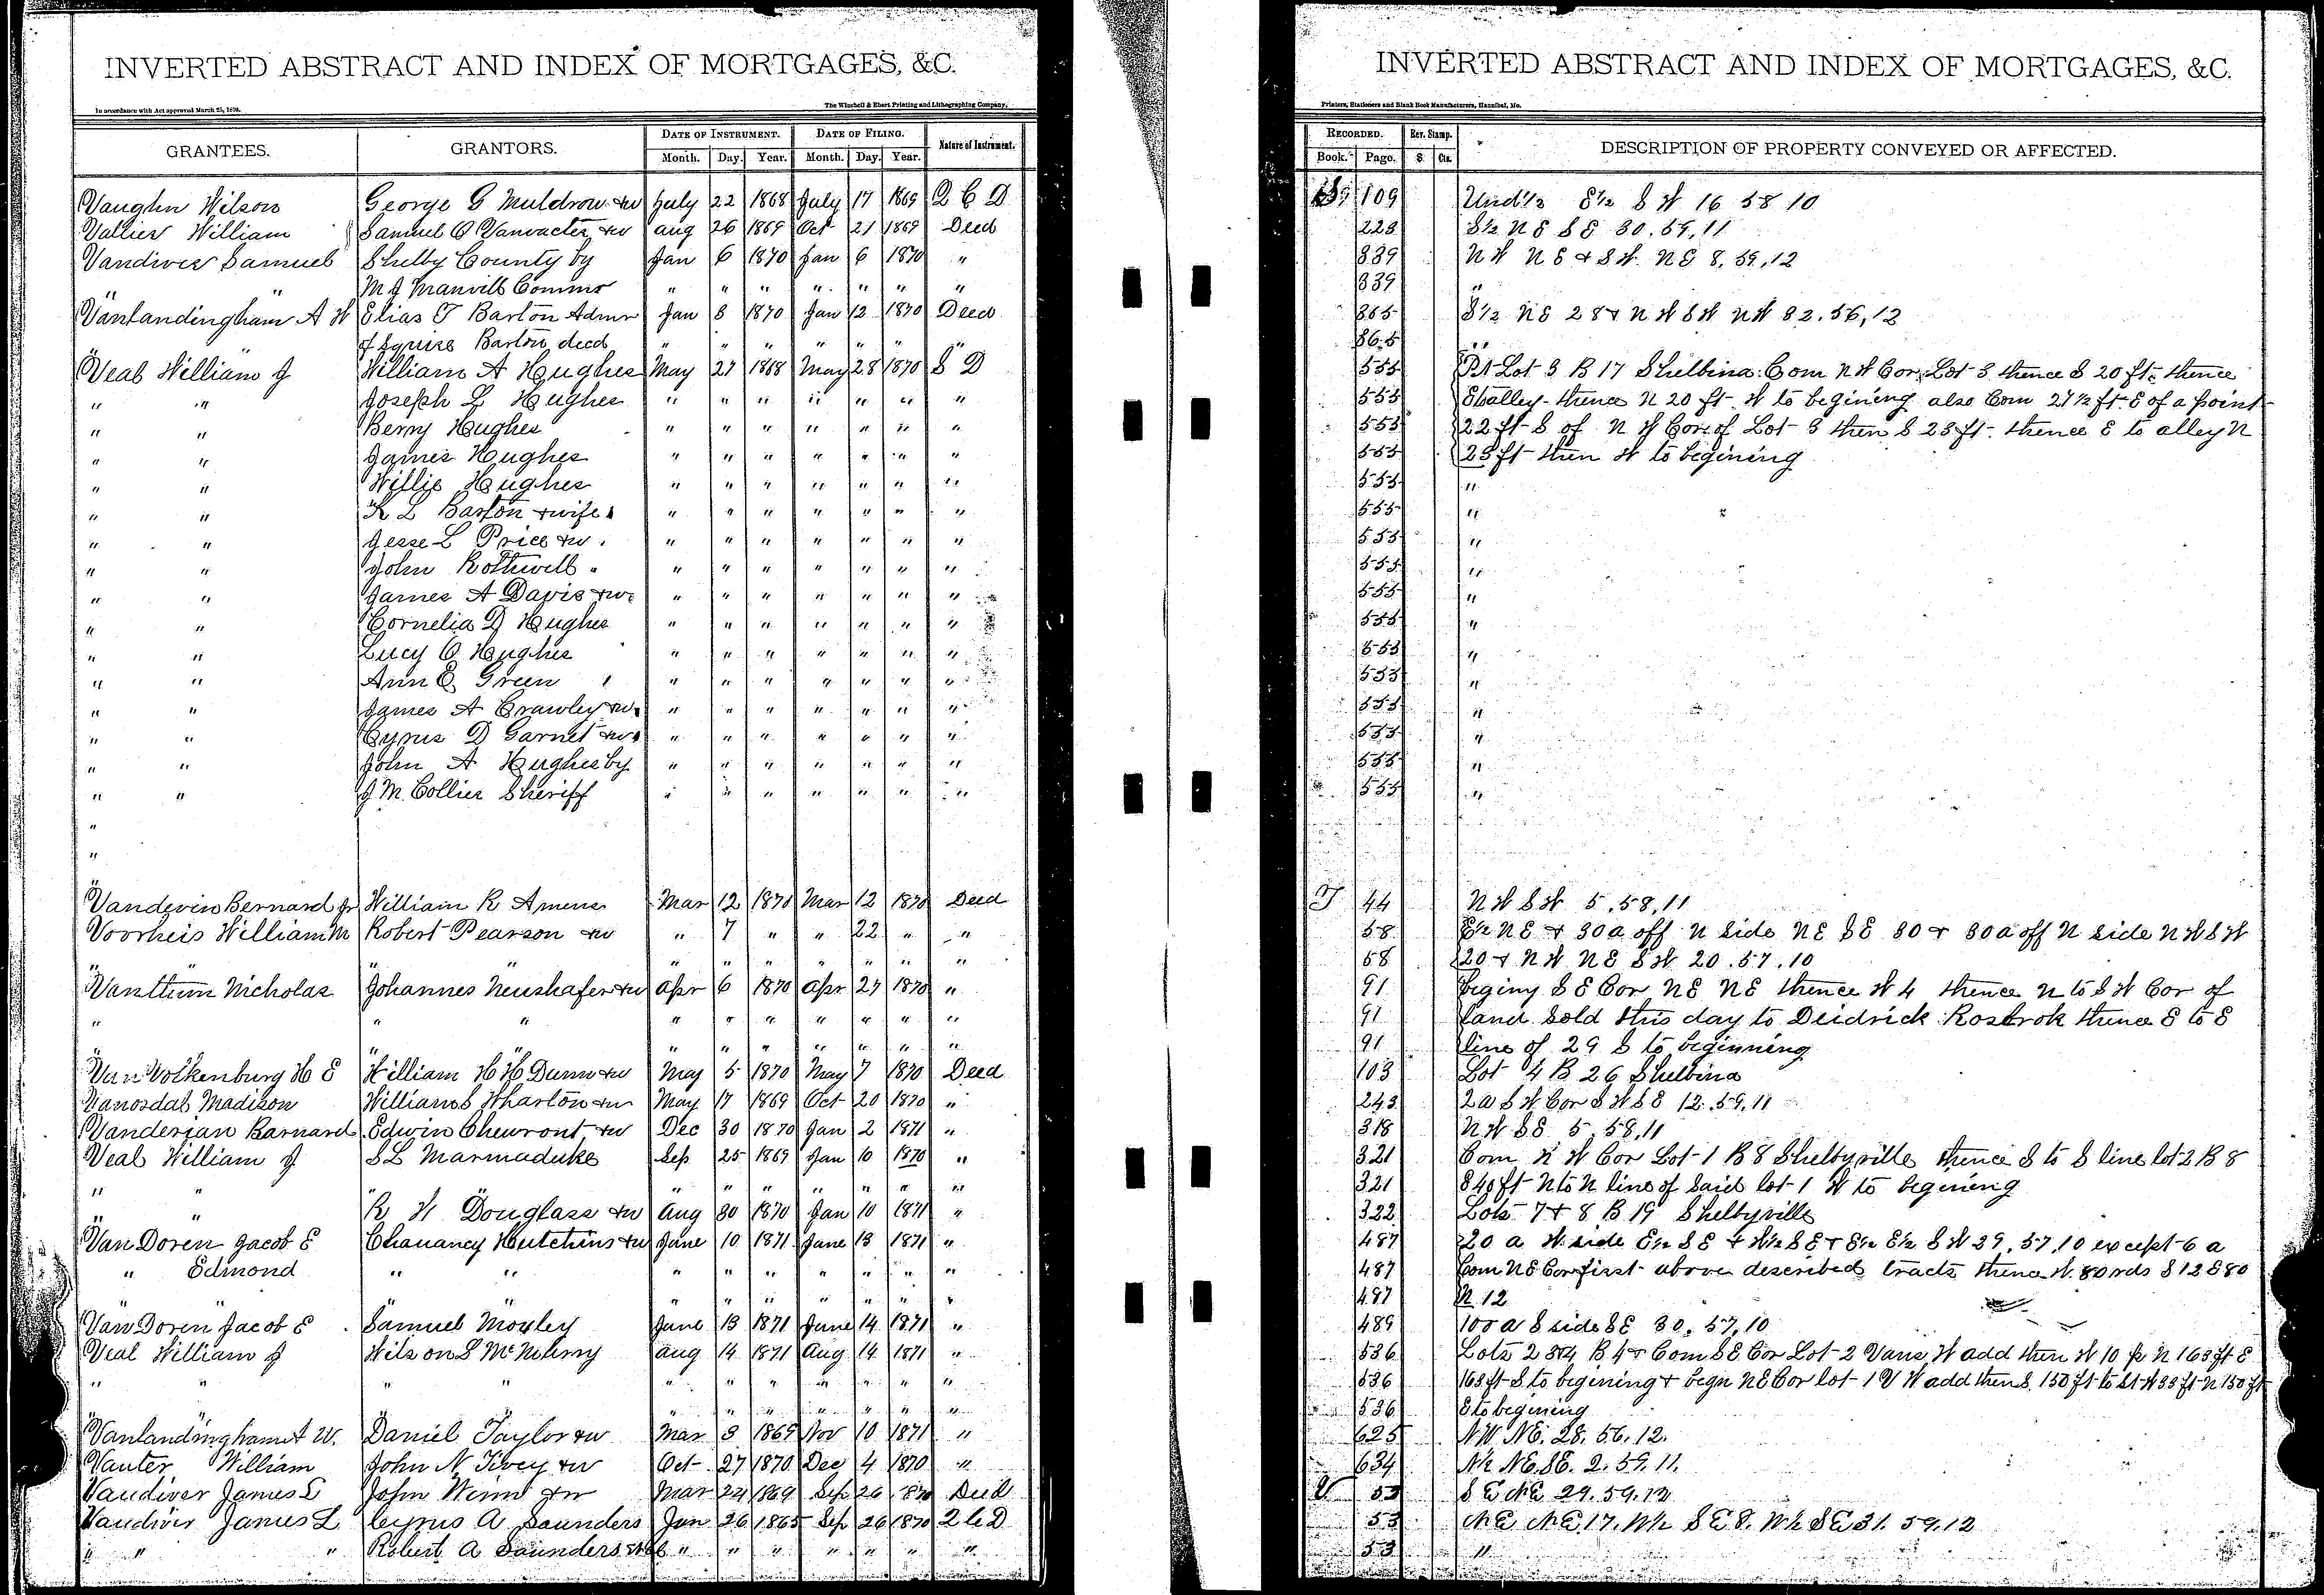 INVERTED ABSTRACT AND INDEX OF MORTGAGES, &C.
In accordance with Act approved March 25, 1870.
The Winchell & Ebert Printing and Lithographing Company,
GRANTEES. GRANTORS. DATE OF INSTRUMENT. DATE OF FILING. Nature of Instrument.
Month. Day. Year. Month. Day. Year.
Vaughn Wilson George G Muldrow &w July 22 1868 July 17 1869 Q C D
Vallier William Samuel O Vanvacter &w Aug 26 1869 Oct 21 1869 Deed
Vandiver Samuel Shelby County by Jan 6 1870 Jan 6 1870 "
" M J Manvill Commr " " " " " " "
Vanlandingham A W Elias T Barton Admr Jan 8 1870 Jan 12 1870 Deed
of Squire Barton decd " " " " " " "
Veal William J William A Hughes May 27 1868 May 28 1870 S D
" " Joseph L Hughes " " " " " " "
" " Berry Hughes " " " " " " "
" " James Hughes " " " " " " "
" " Willie Hughes " " " " " " "
" " K L Barton & wife " " " " " " "
" " Jesse L Price &w " " " " " " "
" " John Rothwell " " " " " " "
" " James A Davis &w " " " " " " "
" " Cornelia D Hughes " " " " " " "
" " Lucy O Hughes " " " " " " "
" " Ann E Green " " " " " " "
" " James A Crawley &w " " " " " " "
" " Cyrus D Garnet &w " " " " " " "
" " John A Hughes by " " " " " " "
" " J M Collier Sheriff " " " " " " "
"
"
Vandevin Bernard Jr William R Amens Mar 12 1870 Mar 12 1870 Deed
Voorheis William M Robert Pearson &w " 7 " " 22 " "
" " " " " " " " "
Vanthun Nicholas Johannes Neushafer &w Apr 6 1870 Apr 27 1870 "
" " " " " " " " " "
" " " " " " " " "
Van Volkenburg H E William H H Dunn &w May 5 1870 May 7 1870 Deed
Vanosdal Madison William S Wharton &w May 17 1869 Oct 20 1870 "
Vanderian Barnard Edwin Cheuront &w Dec 30 1870 Jan 2 1871 "
Veal William J S L Marmaduke Sep 25 1869 Jan 10 1870 "
" " " " " " " " " "
" " R H Douglass &w Aug 30 1870 Jan 10 1871 "
Van Doren Jacob E Chauancy Hutchins &w June 10 1871 June 13 1871 "
" Edmond " " " " " " " " "
" " " " " " " " " "
Van Doren Jacob E Samuel Moxley June 13 1871 June 14 1871 "
Veal William J Wilson S McMurry Aug 14 1871 Aug 14 1871 "
" " " " " " " " " " "
" " " " " " " " "
Vanlandingham A W. Daniel Taylor &w Mar 3 1869 Nov 10 1871 "
Vanter William John N Tivey &w Oct 27 1870 Dec 4 1870 "
Vandiver James L John Winn &w Mar 24 1869 Sep 26 1870 Deed
Vandiver James L Cyrus A Saunders Jan 26 1865 Sep 26 1870 Q C D
" " " Robert A Saunders " " " " " " "
INVERTED ABSTRACT AND INDEX OF MORTGAGES, &C.
Printers, Stationers and Blank Book Manufacturers, Hannibal, Mo.
RECORDED. Rev. Stamp. DESCRIPTION OF PROPERTY CONVEYED OR AFFECTED.
Book. Page. $ Cts.
109 Und 1/2 E1/2 S W 16 58 10
223 S1/2 N E S E 30.59,11
339 N W N E & S W N E 8,59,12
339 "
365 S1/2 NE 28 & N W S W N W 32.56,12
365 "
555 Pt Lot 3 B 17 Shelbina: Com N W Cor. Lot 3 thence S 20 ft. thence
555 E to alley thence N 20 ft W to begining also Com 27 1/2 ft. E of a point
555 22 ft S of N W Cor. of Lot 3 then S 23 ft. thence E to alley N
555 23 ft then W to begining
555 "
555 "
555 "
555 "
555 "
555 "
555 "
555 "
555 "
555 "
555 "
555 "
T 44 N W S W 5.58,11
58 E1/2 N E & 30 a off N side NE SE 30 & 30 a off N side N W S W
58 20 & N W NE S W 20.57.10
91 beginy S E Cor NE NE thence W 4 thence N to S W Cor of
91 land sold this day to Deidrick Rostrok thence E to E
91 line of 29 S to beginning
103 Lot 4 B 26 Shelbina
243 2a S W Cor S W S E 12.59,11
318 N W S E 5.58,11
321 Com N W Cor Lot 1 B 8 Shelbyville thence S to S line lot 2 B 8
321 E 40 ft N to N line of said lot 1 W to begining
322 Lots 7 & 8 B 19 Shelbyville
487 20 a W side E1/2 S E & W1/2 S E & E1/2 E1/2 S W 29.57.10 except 6 a
487 Com N E Cor first above described tracts thence W 80 rds S 12 E 80
487 N 12
489 100 a S side SE 30.57,10
536 Lots 2 3&4 B 4 & Com S E Cor Lot 2 Vans W add then W 10 N 163 ft E
536 163 ft S to begining & begn NE Cor lot 1 V W add then S 150 ft to St W 33 ft N 150 ft
536 E to begining
625 NW NE. 28. 56. 12.
634 N1/2 NE. SE. 2. 59. 11.
U 53 S E NE 29. 59. 12
53 NE NE 17. W1/2 SE 8. W1/2 SE 31. 59. 12
53 "